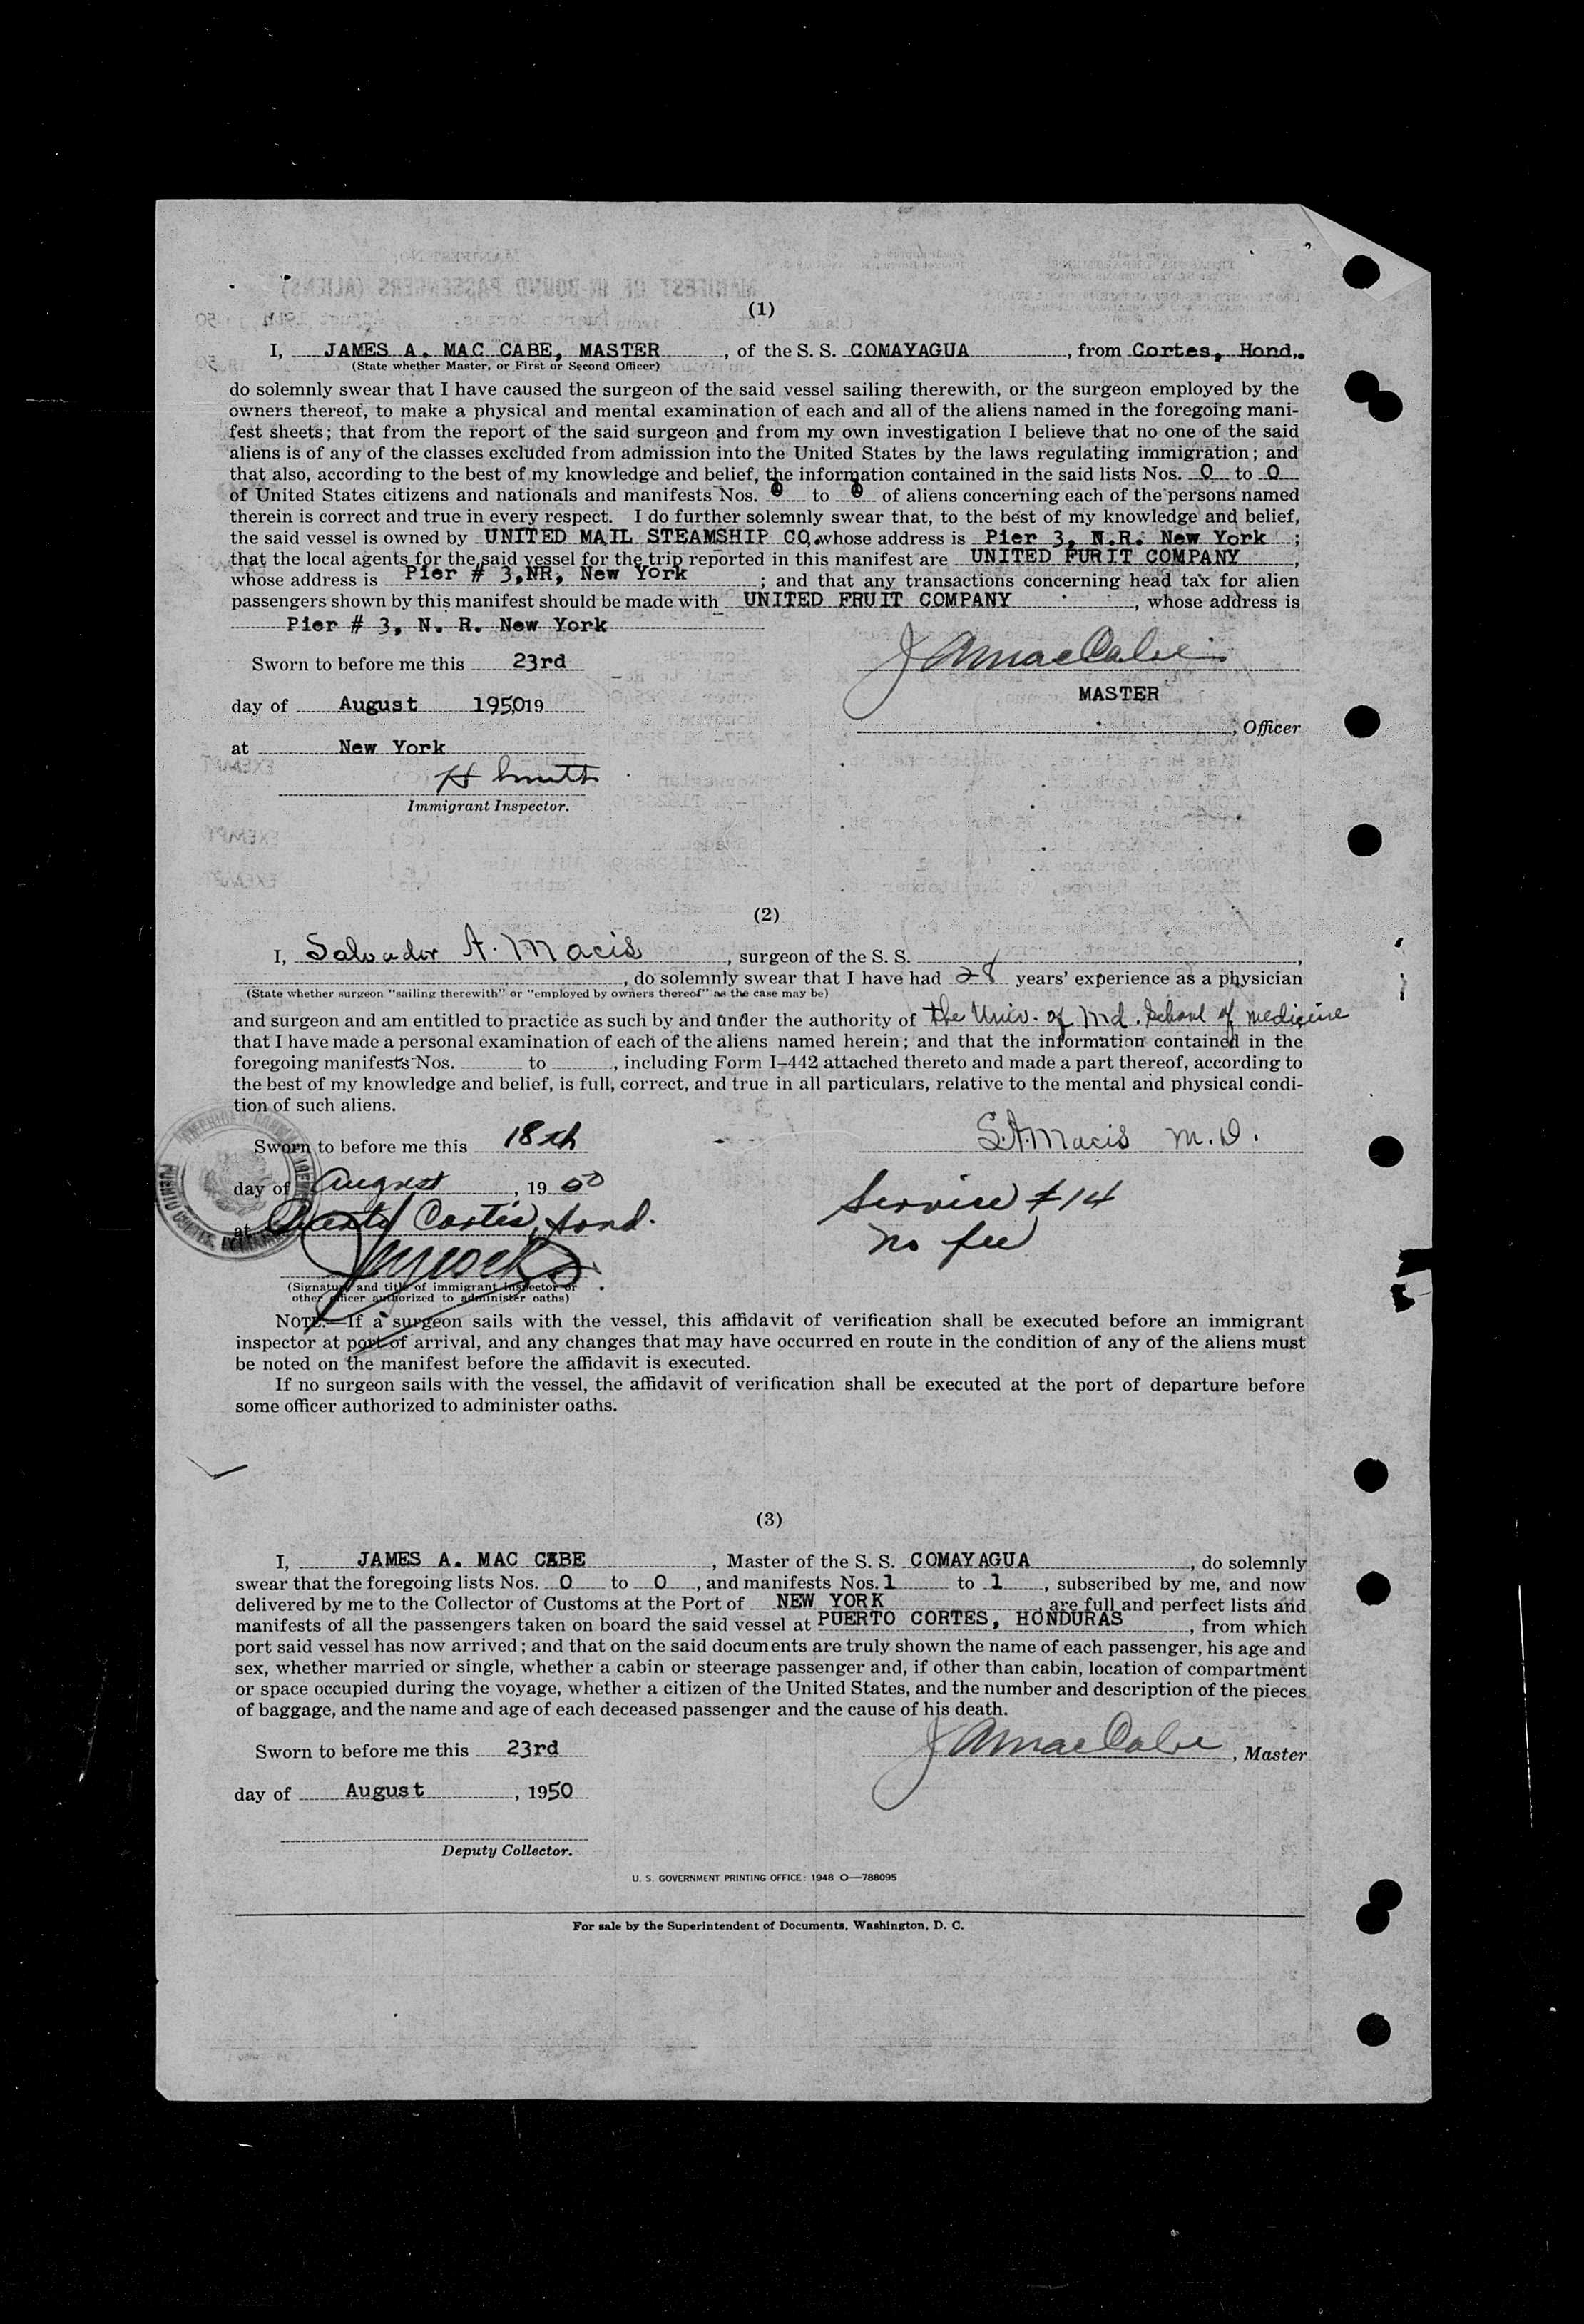 (1)
I, JAMES A. MAC CABE, MASTER, of the S. S. COMAYAGUA, from Cortes, Hond,.
(State whether Master, or First or Second Officer)
do solemnly swear that I have caused the surgeon of the said vessel sailing therewith, or the surgeon employed by the
owners thereof, to make a physical and mental examination of each and all of the aliens named in the foregoing mani-
fest sheets; that from the report of the said surgeon and from my own investigation I believe that no one of the said
aliens is of any of the classes excluded from admission into the United States by the laws regulating immigration; and
that also, according to the best of my knowledge and belief, the information contained in the said lists Nos. 0 to 0
of United States citizens and nationals and manifests Nos. to of aliens concerning each of the persons named
therein is correct and true in every respect. I do further solemnly swear that, to the best of my knowledge and belief,
the said vessel is owned by UNITED MAIL STEAMSHIP CO. whose address is Pier 3, N.R. New York ;
that the local agents for the said vessel for the trip reported in this manifest are UNITED FURIT COMPANY,
whose address is Pier # 3,NR, New York ; and that any transactions concerning head tax for alien
passengers shown by this manifest should be made with UNITED FRUIT COMPANY, whose address is
Pier # 3, N. R. New York
J A MacCabe
Sworn to before me this 23rd
MASTER
day of August 195019
, Officer
at New York
H Smith
Immigrant Inspector.
(2)
I, Salvador A. Macis, surgeon of the S. S. ,
, do solemnly swear that I have had 28 years' experience as a physician
(State whether surgeon "sailing therewith" or "employed by owners thereof" as the case may be)
and surgeon and am entitled to practice as such by and under the authority of the Univ. of Md. School of medicine
that I have made a personal examination of each of the aliens named herein; and that the information contained in the
foregoing manifests Nos. to , including Form I-442 attached thereto and made a part thereof, according to
the best of my knowledge and belief, is full, correct, and true in all particulars, relative to the mental and physical condi-
tion of such aliens.
Sworn to before me this 18th
S.A. Macis M.D.
day of August, 1950
Service #14
at Puerto Cortes, Hond.
No fee
(Signature and title of immigrant inspector or
other officer authorized to administer oaths)
NOTE.—If a surgeon sails with the vessel, this affidavit of verification shall be executed before an immigrant
inspector at port of arrival, and any changes that may have occurred en route in the condition of any of the aliens must
be noted on the manifest before the affidavit is executed.
If no surgeon sails with the vessel, the affidavit of verification shall be executed at the port of departure before
some officer authorized to administer oaths.
(3)
I, JAMES A. MAC CABE, Master of the S. S. COMAYAGUA, do solemnly
swear that the foregoing lists Nos. 0 to 0, and manifests Nos. 1 to 1, subscribed by me, and now
delivered by me to the Collector of Customs at the Port of NEW YORK are full and perfect lists and
manifests of all the passengers taken on board the said vessel at PUERTO CORTES, HONDURAS, from which
port said vessel has now arrived; and that on the said documents are truly shown the name of each passenger, his age and
sex, whether married or single, whether a cabin or steerage passenger and, if other than cabin, location of compartment
or space occupied during the voyage, whether a citizen of the United States, and the number and description of the pieces
of baggage, and the name and age of each deceased passenger and the cause of his death.
Sworn to before me this 23rd
J A MacCabe, Master
day of August, 1950
Deputy Collector.
U. S. GOVERNMENT PRINTING OFFICE: 1948 O—788095
For sale by the Superintendent of Documents, Washington, D. C.